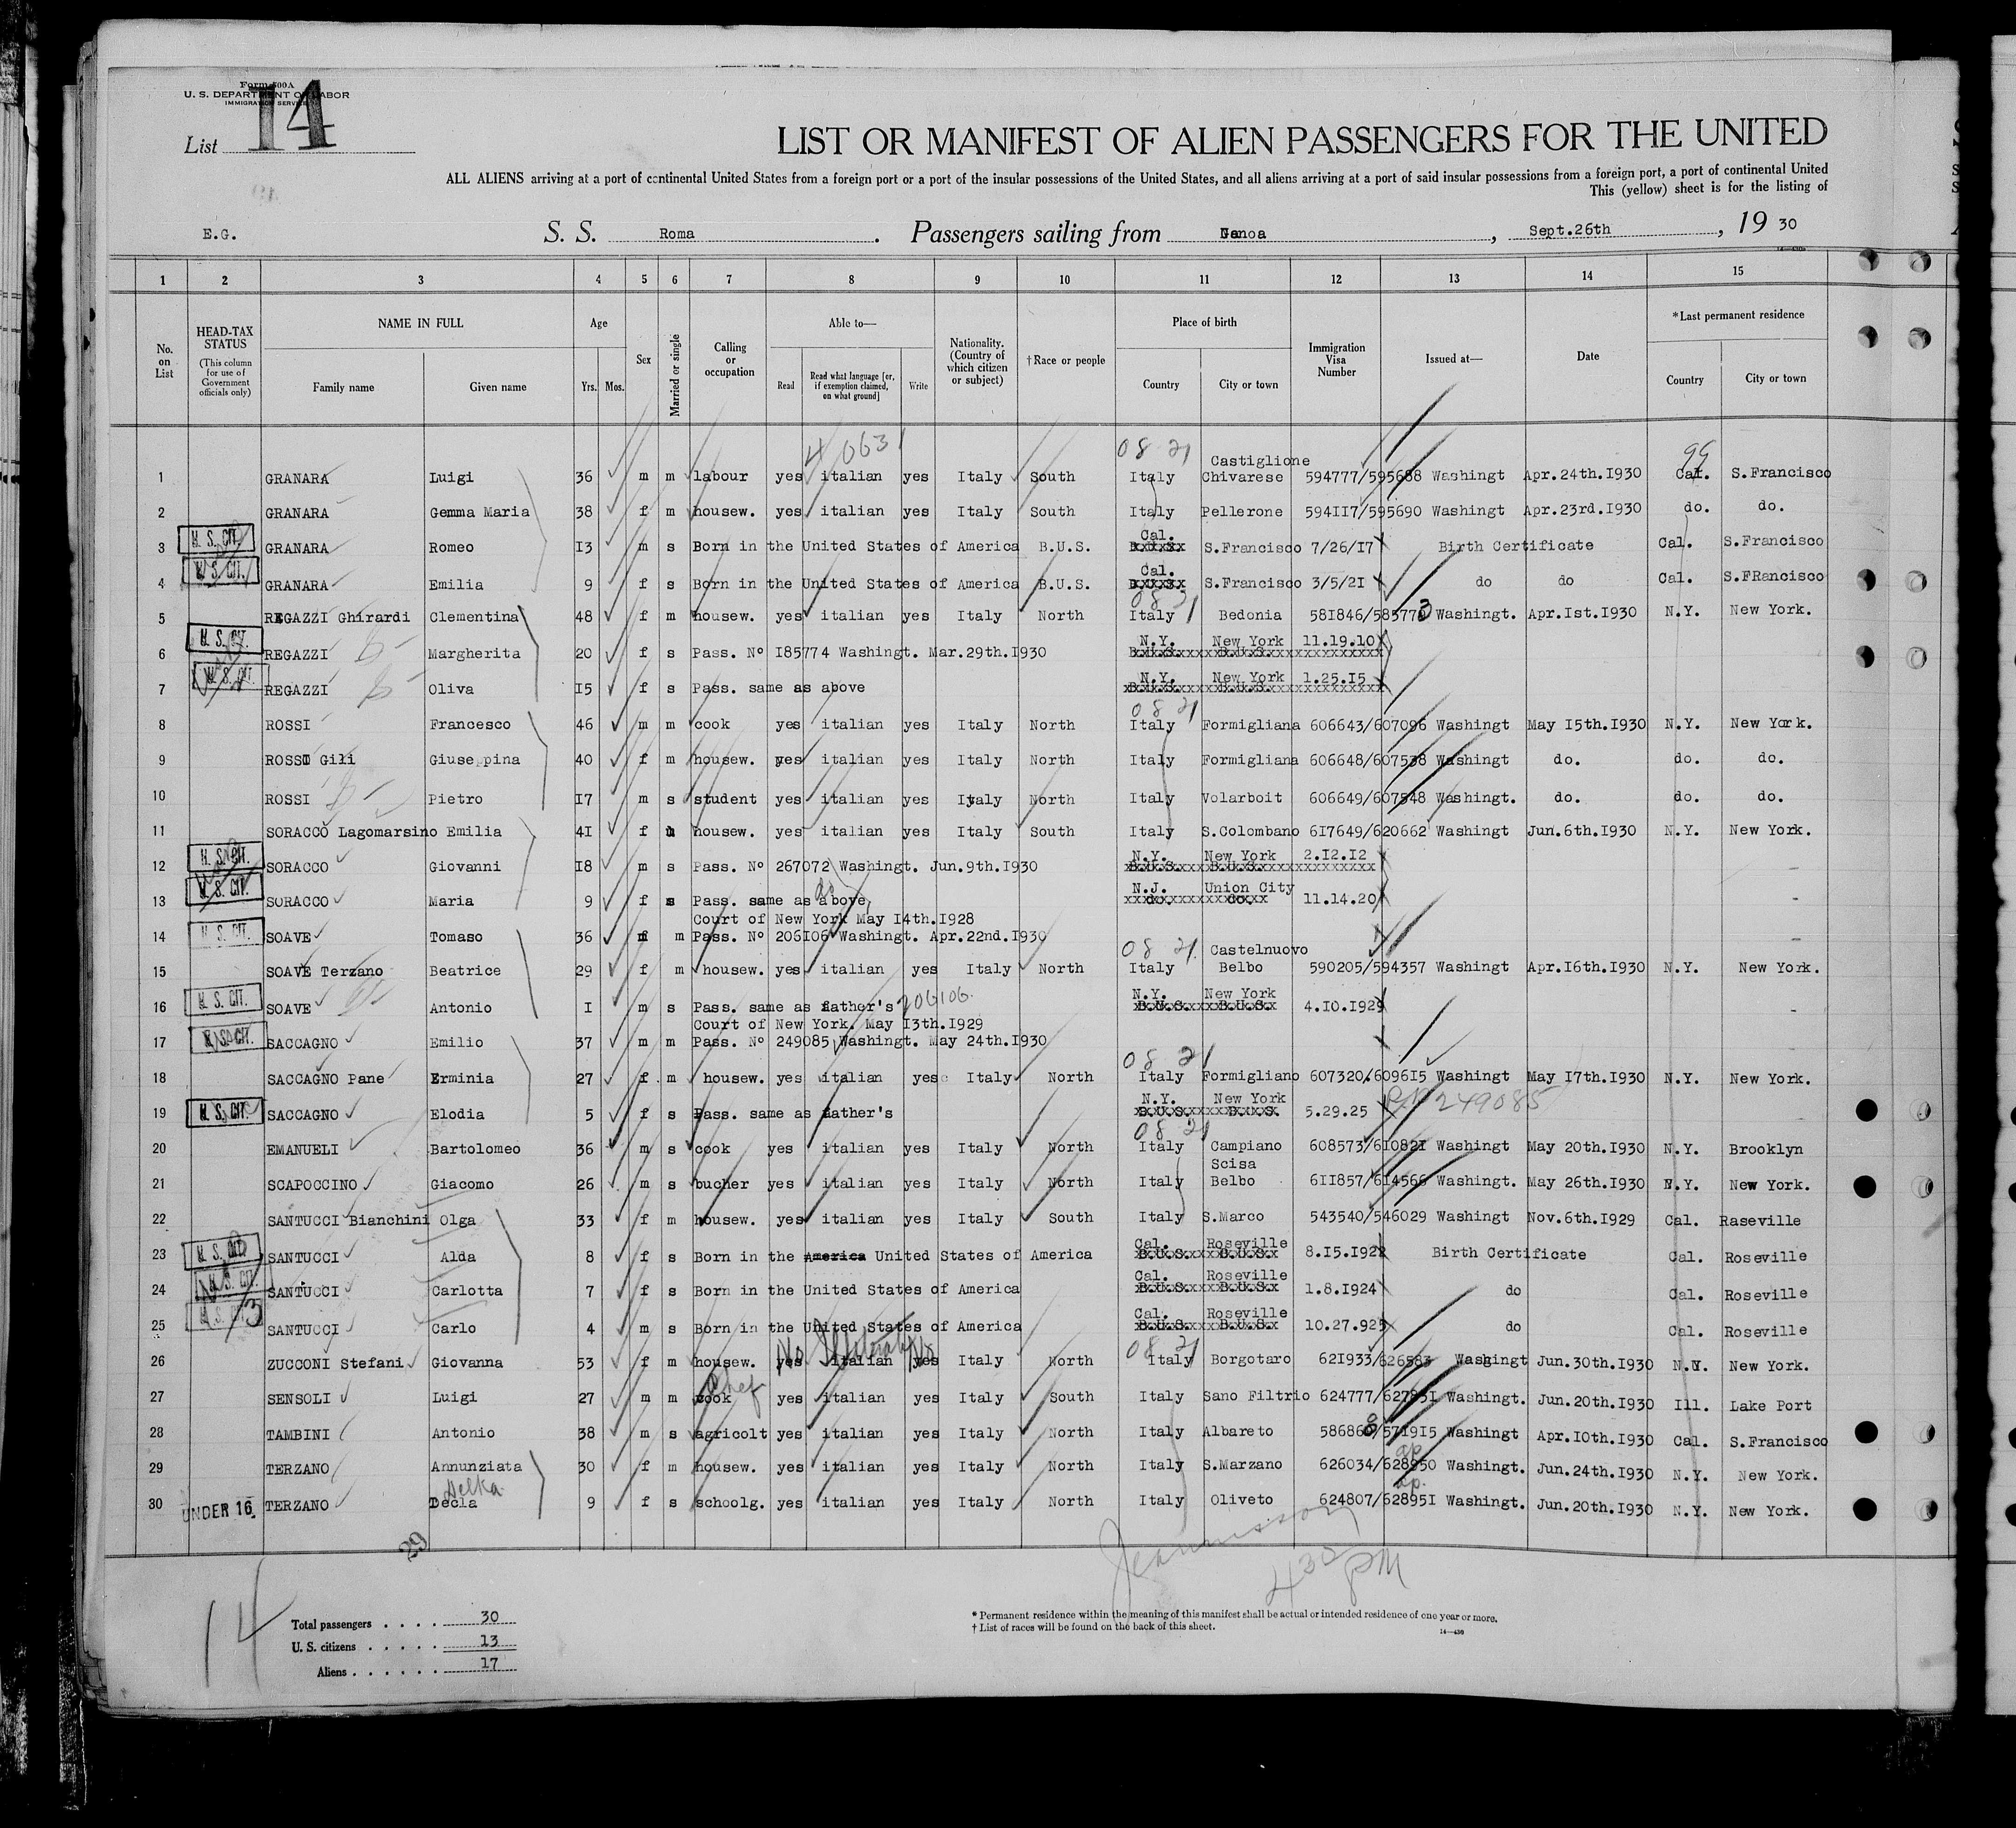 Form 500A
U. S. DEPARTMENT OF LABOR
IMMIGRATION SERVICE
List 14
LIST OR MANIFEST OF ALIEN PASSENGERS FOR THE UNITED
ALL ALIENS arriving at a port of continental United States from a foreign port or a port of the insular possessions of the United States, and all aliens arriving at a port of said insular possessions from a foreign port, a port of continental United
This (yellow) sheet is for the listing of
E.G. S. S. Roma. Passengers sailing from Genoa, Sept.26th, 19 30
1 2 3 4 5 6 7 8 9 10 11 12 13 14 15
No. on List
HEAD-TAX STATUS (This column for use of Government officials only)
NAME IN FULL Family name Given name
Age Yrs. Mos.
Sex
Married or single
Calling or occupation
Able to— Read Read what language [or, if exemption claimed, on what ground] Write
Nationality. (Country of which citizen or subject)
†Race or people
Place of birth Country City or town
Immigration Visa Number
Issued at—
Date
*Last permanent residence Country City or town
4 0631 08 21 99
1 GRANARA Luigi 36 m m labour yes italian yes Italy South Italy Castiglione Chivarese 594777/595688 Washingt Apr.24th.1930 Cal. S.Francisco
2 GRANARA Gemma Maria 38 f m housew. yes italian yes Italy South Italy Pellerone 594117/595690 Washingt Apr.23rd.1930 do. do.
3 U. S. CIT. GRANARA Romeo 13 m s Born in the United States of America B.U.S. Cal. S.Francisco 7/26/17 Birth Certificate Cal. S.Francisco
4 U. S. CIT. GRANARA Emilia 9 f s Born in the United States of America B.U.S. Cal. S.Francisco 3/5/21 do do Cal. S.FRancisco
08 21
5 REGAZZI Ghirardi Clementina 48 f m housew. yes italian yes Italy North Italy Bedonia 581846/585773 Washingt. Apr.1st.1930 N.Y. New York.
6 U. S. CIT. REGAZZI Margherita 20 f s Pass. Nº 185774 Washingt. Mar.29th.1930 N.Y. New York 11.19.10
7 U. S. CIT. REGAZZI Oliva 15 f s Pass. same as above N.Y. New York 1.25.15
08 21
8 ROSSI Francesco 46 m m cook yes italian yes Italy North Italy Formigliana 606643/607096 Washingt May 15th.1930 N.Y. New York.
9 ROSSI Gili Giuseppina 40 f m housew. yes italian yes Italy North Italy Formigliana 606648/607538 Washingt do. do. do.
10 ROSSI Pietro 17 m s student yes italian yes Italy North Italy Volarboit 606649/607548 Washingt. do. do. do.
11 SORACCO Lagomarsino Emilia 41 f housew. yes italian yes Italy South Italy S.Colombano 617649/620662 Washingt Jun.6th.1930 N.Y. New York.
12 U. S. CIT. SORACCO Giovanni 18 m s Pass. Nº 267072 Washingt. Jun.9th.1930 N.Y. New York 2.12.12
13 U. S. CIT. SORACCO Maria 9 f s Pass. same as above, do N.J. Union City 11.14.20
Court of New York May 14th.1928
14 U. S. CIT. SOAVE Tomaso 36 m m Pass. Nº 206106 Washingt. Apr.22nd.1930
08 21
15 SOAVE Terzano Beatrice 29 f m housew. yes italian yes Italy North Italy Castelnuovo Belbo 590205/594357 Washingt Apr.16th.1930 N.Y. New York.
16 U. S. CIT. SOAVE Antonio 1 m s Pass. same as father's 206106 N.Y. New York 4.10.1929
Court of New York. May 13th.1929
17 U. S. CIT. SACCAGNO Emilio 37 m m Pass. Nº 249085 Washingt. May 24th.1930
08 21
18 SACCAGNO Pane Erminia 27 f m housew. yes italian yes Italy North Italy Formigliano 607320/609615 Washingt May 17th.1930 N.Y. New York.
19 U. S. CIT. SACCAGNO Elodia 5 f s Pass. same as father's N.Y. New York 5.29.25 249085
08 21
20 EMANUELI Bartolomeo 36 m s cook yes italian yes Italy North Italy Campiano 608573/610821 Washingt May 20th.1930 N.Y. Brooklyn
21 SCAPOCCINO Giacomo 26 m s bucher yes italian yes Italy North Italy Scisa Belbo 611857/614566 Washingt. May 26th.1930 N.Y. New York.
22 SANTUCCI Bianchini Olga 33 f m housew. yes italian yes Italy South Italy S.Marco 543540/546029 Washingt Nov.6th.1929 Cal. Raseville
23 U. S. CIT. SANTUCCI Alda 8 f s Born in the America United States of America Cal. Roseville 8.15.1922 Birth Certificate Cal. Roseville
24 U. S. CIT. SANTUCCI Carlotta 7 f s Born in the United States of America Cal. Roseville 1.8.1924 do Cal. Roseville
25 U. S. CIT. 13 SANTUCCI Carlo 4 m s Born in the United States of America Cal. Roseville 10.27.925 do Cal. Roseville
No Illiterate No 08 21
26 ZUCCONI Stefani Giovanna 53 f m housew. yes italian yes Italy North Italy Borgotaro 621933/626583 Washingt Jun.30th.1930 N.Y. New York.
27 SENSOLI Luigi 27 m m cook Chef yes italian yes Italy South Italy Sano Filtrio 624777/627851 Washingt. Jun.20th.1930 Ill. Lake Port
28 TAMBINI Antonio 38 m s agricolt yes italian yes Italy North Italy Albareto 586868/571915 Washingt Apr.10th.1930 Cal. S.Francisco
29 TERZANO Annunziata 30 f m housew. yes italian yes Italy North Italy S.Marzano 626034/628950 Washingt. Jun.24th.1930 N.Y. New York.
30 UNDER 16 TERZANO Decla Delka 9 f s schoolg. yes italian yes Italy North Italy Oliveto 624807/628951 Washingt. Jun.20th.1930 N.Y. New York.
29
430 PM
14
Total passengers . . . . 30
U. S. citizens . . . . . 13
Aliens . . . . . . 17
* Permanent residence within the meaning of this manifest shall be actual or intended residence of one year or more.
† List of races will be found on the back of this sheet.
14—430